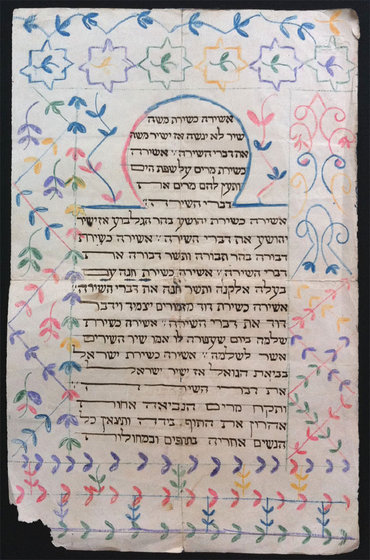 אשירה כשירת משה
שיר לא ינשה אז ישיר משה
את דברי השירה׳׳ אשירה
כשירת מרים על שפת הים
ותען להם מרים את
דברי השירה׳׳
אשירה כשירת יהושע בהר הגלבוע אז ישיר
יהושע את דברי השירה׳׳ אשירה כשירת
דבורה בהר תבורה ותשר דבורה את
דברי השירה׳׳ אשירה כשירת חנה
בעלה אלקנה ותשר חנה את דברי השירה׳׳
אשירה כשירת דוד מזמורים יצמיד וידבר
דוד את דברי השירה׳׳ אשירה כשירת
שלמה ביום שעטרה לו אמו שיר השירים
אשר לשלמה׳׳ אשירה כשירת ישראל
בביאת הגואל אז ישיר ישראל
את דברי השירה
ותקח מרים הנביאה אחות
אהרן את התוף בידה ותצאן כל
הנשים אחריה בתופים ובמחולות